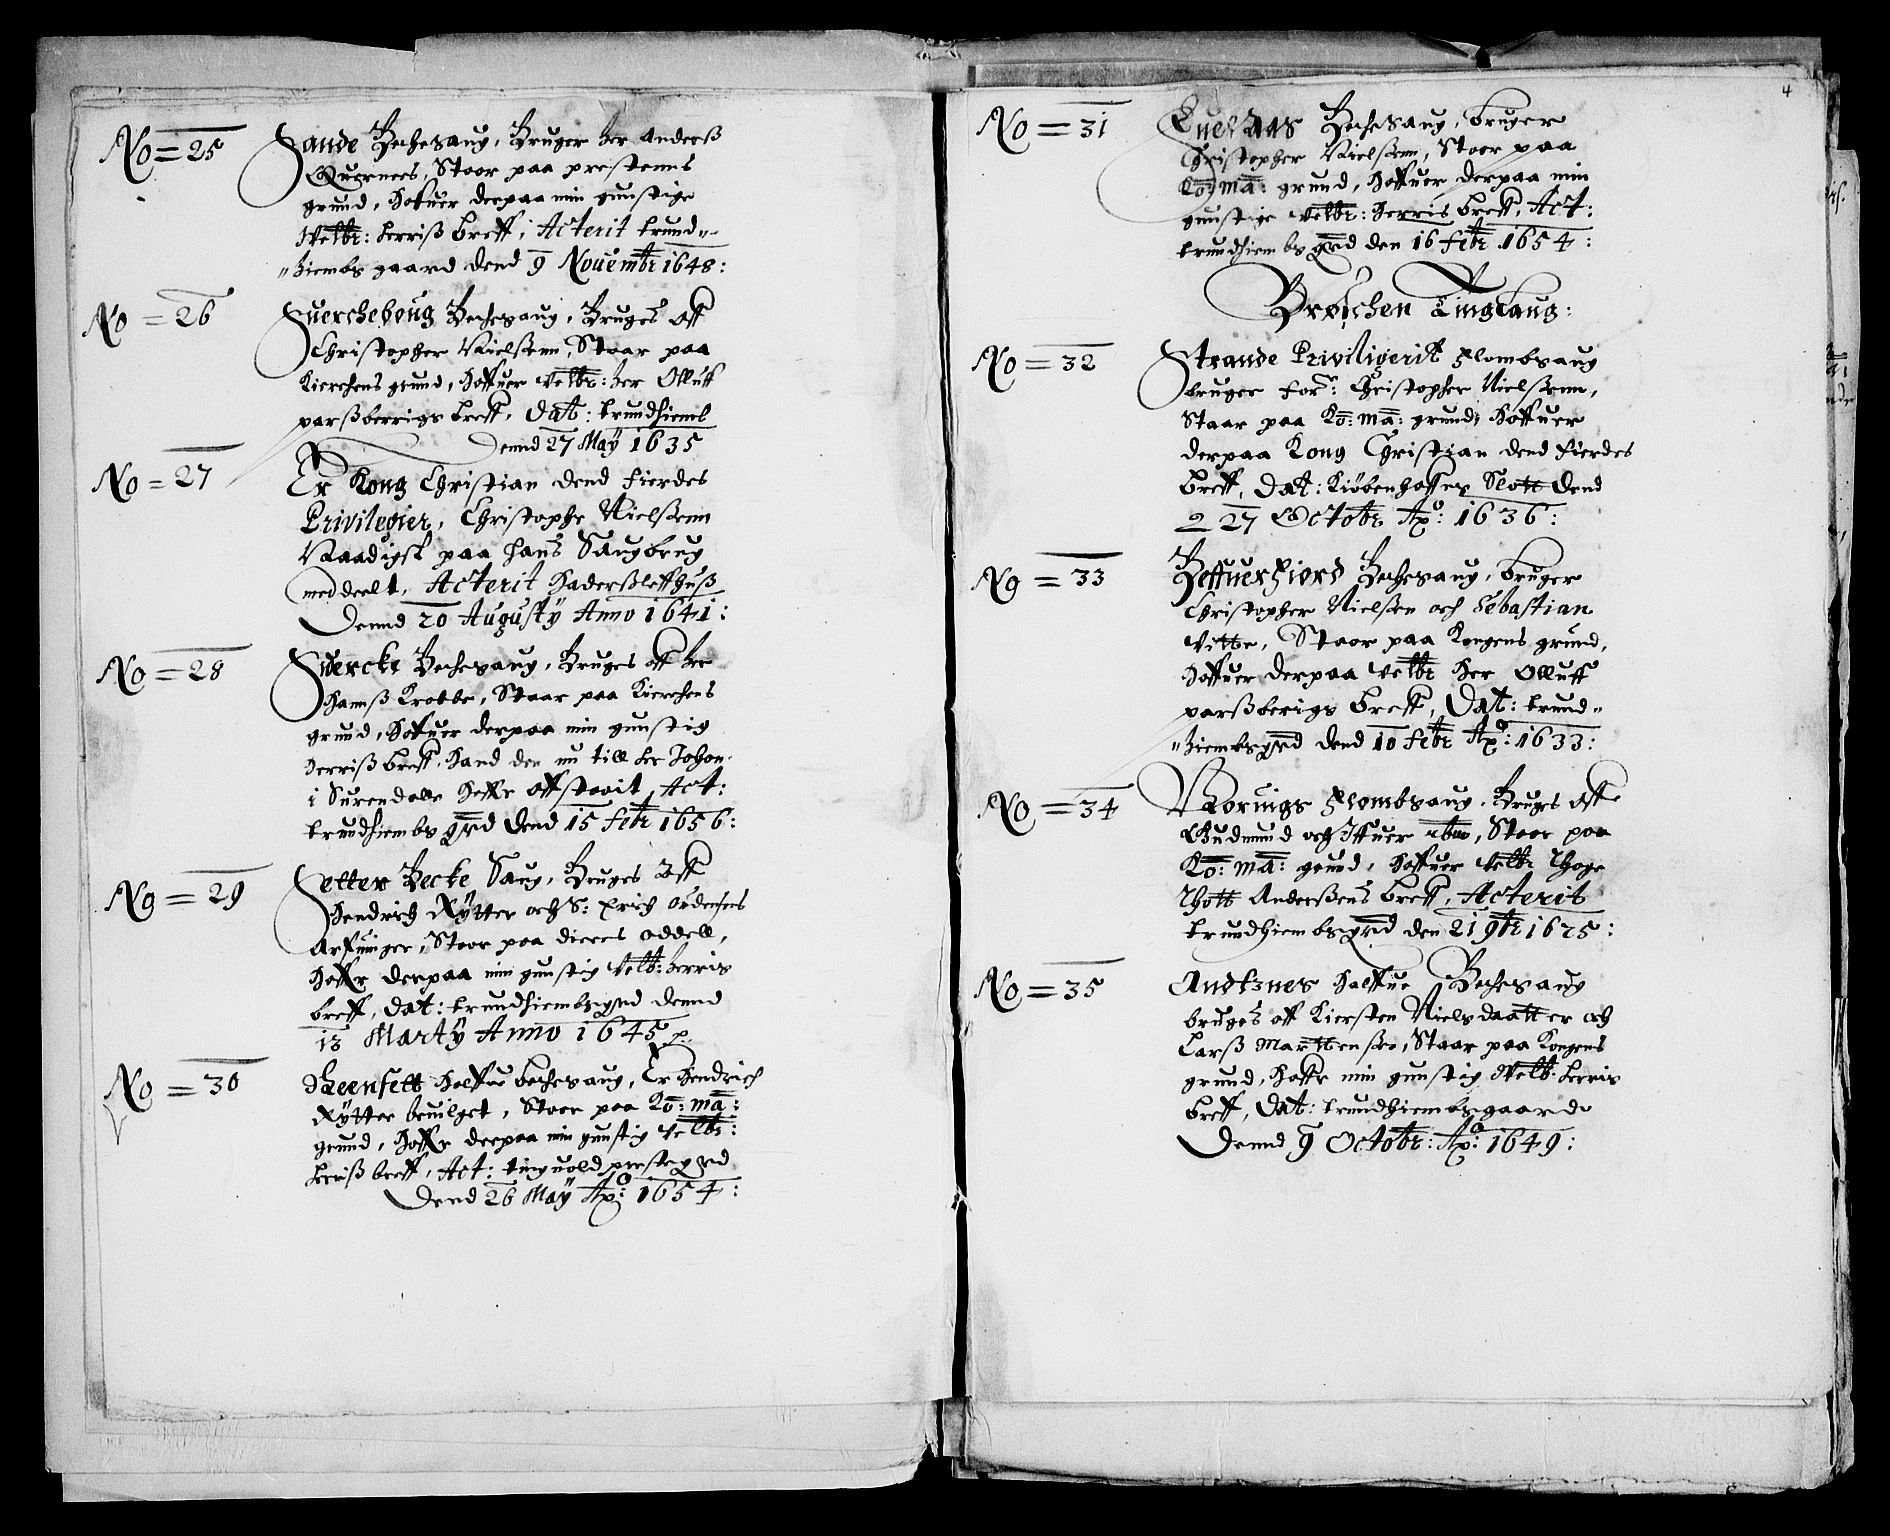 No = 25
Sande Beckesaug, Bruger her Anderß
Quernees, Stoer paa prestenns
grund, Hafuer derpaa min gunstige
Velbr: herriß breff, Acterit trund-
hiembs gaard dend 9 Nouembr 1648:
No = 26
Suercheboug Beckesaug, Bruges aff
Christopher Nielßenn, Staar paa
Kierchens grund, Haffuer Velbr: her Olluff
parßberrigs breff, Dat: trundhiemb
Dennd 27 May 1635
No = 27
Er Kong Christian dend fierdes
Privilegier, Christopher Nielßenn
Naadigst paa hans Saugbrug
meddeelt, Acterit Haderßleffhuß
Dennd 20 Augusty Anno 1641:
No = 28
Suercke Beckesaug, Bruges aff her
Hannß Krabbe, Staar paa Kierchens
grund, Hafuer derpaa min gunstig
herriß breff, Hand den nu till her Johan
i Surendalle Haffr affstaait, Act:
trundhiembs grd dend 15 febr 1656:
No = 29
Setter Becke Saug, Bruges Aff
Hendrich Rytter och S: Erich Ordensens
Arfuinger, Staar paa dieres oddell,
Haffr derpaa min gunstig Velb: herris
breff, Dat: trundhiembsgrd dennd
13 Marty Anno 1645 p
No = 30
Reensett halffue beckesaug, Er Hendrich
Rytter beuilget, Stoer paa Ko: ma:
grund, Haffr derpaa min gunstig Velbr:
herriß breff, Act: tinguold prestegrd
Dend 26 May Ao: 1654:
4
No = 31
Quelaas Beckesaug, bruger
Christopher Nielßenn, Stoer paa
Ko: ma: grund, Haffuer derpaa min
gunstige Velbr: herris breff, Act:
trundhiembs grd den 16 febr 1654:
Brøschen Tinglaug:
No = 32
Strande Priviligerit flombsaug
bruger for: Christopher Nielßenn,
Staar paa Ko: ma: grund, Haffuer
derpaa Kong Christian dend fierdes
breff, Dat: Kiøbenhaffns Slott dend
27 Octobr Ao: 1636:
No = 33
Beffuerfiord Beckesaug, bruger
Christopher Nielßen och Sebastian
Vitte, Stoer paa Kongens grund,
Haffuer derpaa Velbr Her Olluff
parßberigs breff, Dat: trund-
hiembsgrd dend 10 febr Ao: 1633:
No = 34
Nornings flombsaug, Bruges aff
Gudmund och Iffuer ibm, Stoer paa
Ko: ma: grund, Haffuer Velbr Thage
Thott Anderßens breff, Acterit
trundhiembsgrd den 21 9br 1625:
No = 35
Andtznes halffue Beckesaug
bruges aff Kiersten Nielsdaatter och
Larß Marttenßen, Staar paa Kongens
grund, Haffr min gunstig Velb: herris
breff, Dat: trundhiembsgaarde
Dennd 9 Octobr: Ao: 1649: